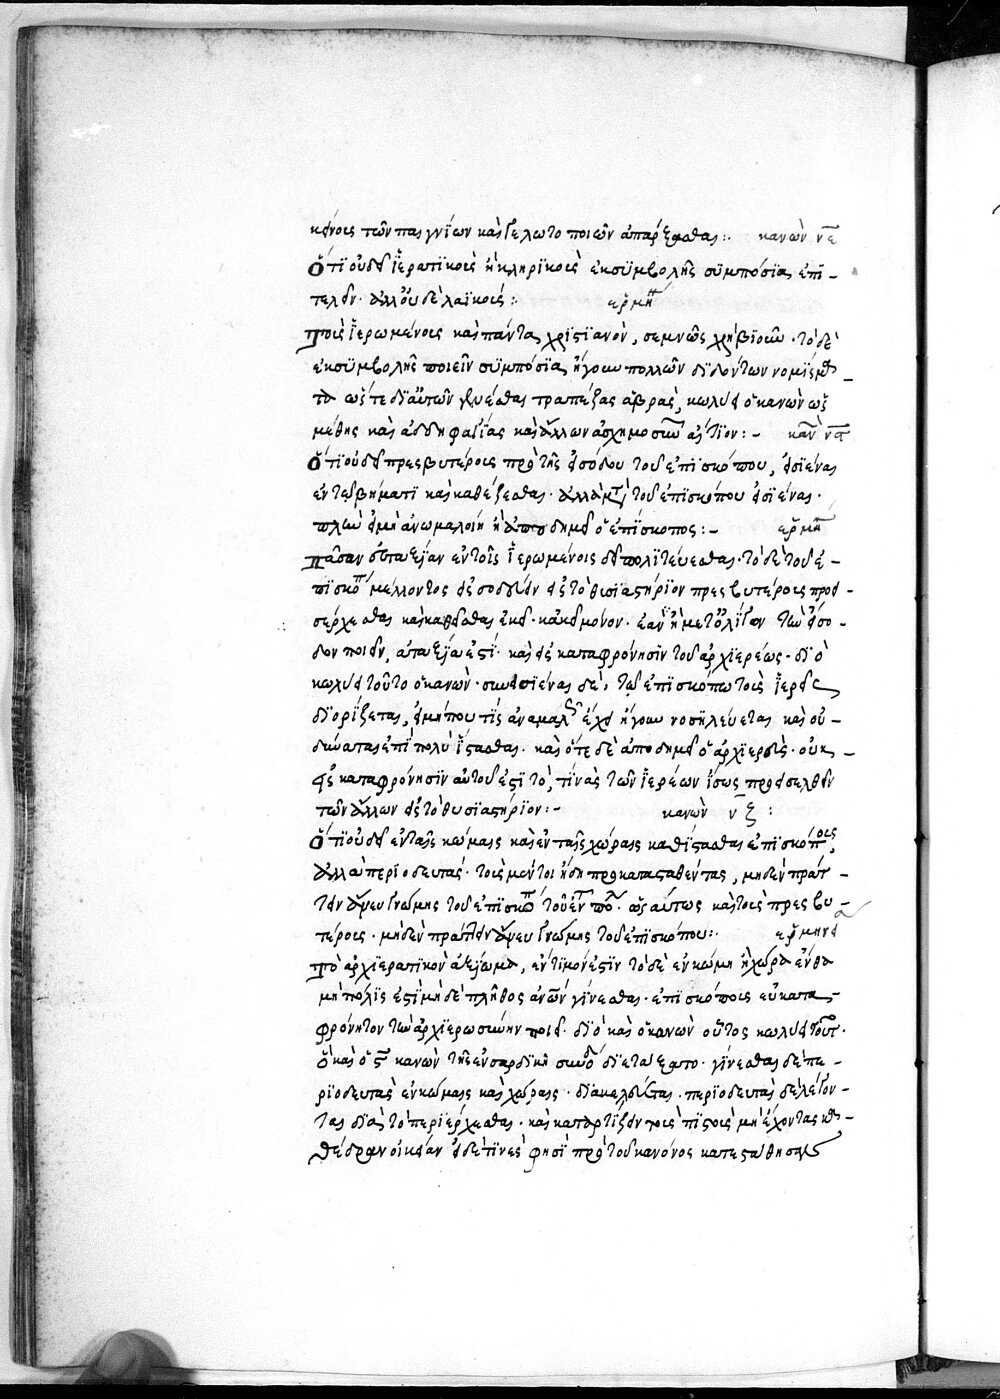 κείνοις τῶν παιγνίων καὶ γελωτοποιῶν ἀπάρξασθαι :· κανὼν νε
Ὅτι οὐ δεῖ ἱερατικοῖς ἢ κληρικοῖς ἐκ συμβολῆς συμπόσια ἐπι-
τελεῖν· ἀλλ' οὐδὲ λαϊκοῖς :· ἑρμη
Τοῖς ἱερωμένοις καὶ πάντα χριστιανὸν, σεμνῶς χρὴ βιοῦν· τὸ δὲ
ἐκ συμβολῆς ποιεῖν συμπόσια, ἤγουν πολλῶν διδόντων νομίσμα-
τα ὥστε δι' αὐτῶν γενέσθαι τραπέζας ἁβρὰς, κωλύει ὁ κανὼν ὡς
μέθης καὶ ἀδδηφαγίας καὶ ἄλλων ἀσχημοσυνῶν αἴτιον :- καν νς
Ὅτι οὐ δεῖ πρεσβυτέροις πρὸ τῆς εἰσόδου τοῦ ἐπισκόπου, εἰσιέναι
ἐν τῷ βήματι καὶ καθέζεσθαι· ἀλλὰ μετὰ τοῦ ἐπισκόπου εἰσιέναι·
πλὴν εἰ μὴ ἀνωμαλοίη ἢ ἀποδημεῖ ὁ ἐπίσκοπος :- ἑρμη
Πᾶσαν εὐταξίαν ἐν τοῖς ἱερωμένοις δεῖ πολιτεύεσθαι· τὸ δὲ τοῦ ἐ-
πισκόπ μέλλοντος εἰσοδεύειν εἰς τὸ θυσιαστήριον πρεσβυτέροις προει-
σέρχεσθαι καὶ καθῆσθαι ἐκεῖ· κἀκεῖ μόνον· ἐὰν ἢ μετ' ὀλίγον τὴν εἴσο-
δον ποιεῖν, ἀταξία ἐστὶ· καὶ εἰς καταφρόνησιν τοῦ ἀρχιερέως· διὸ
κωλύει τοῦτο ὁ κανών· συνεισιέναι δὲ, τῷ ἐπισκόπῳ τοὺς ἱερεῖς
διορίζεται, εἰ μή που τίς ἀνωμάλως ἔχει ἤγουν νοσηλεύεται καὶ οὐ-
δύναται ἐπὶ πολὺ ἵστασθαι· καὶ ὅτε δὲ ἀποδημεῖ ὁ ἀρχιερεὺς· οὐκ-
εἰς καταφρόνησιν αὐτοῦ ἐστὶ τὸ, τινὰς τῶν ἱερέων ἴσως προεισελθεῖν
τῶν ἄλλων εἰς τὸ θυσιαστήριον :- κανὼν νζ :
Ὅτι οὐ δεῖ ἐν ταῖς κώμαις καὶ ἐν ταῖς χώραις καθίστασθαι ἐπισκόποις,
ἀλλὰ περιοδευτάς· τοὺς μέντοι ἤδη προκατασταθέντας, μηδὲν πράτ-
τειν ἄνευ γνώμης τοῦ ἐπισκόπ τοῦ ἐν τ πόλ· ὡσαύτως καὶ τοὺς πρεσβυ-
τέροις· μηδὲν πράττειν ἄνευ γνώμης τοῦ ἐπισκόπου :· ἑρμηνεία
Τὸ ἀρχιερατικὸν ἀξίωμα, ἔντιμόν ἐστιν τὸ δὲ ἐν κώμῃ ἢ χώρᾳ ἔνθα
μὴ πόλις ἐστὶ μὴ δὲ πλῆθος ἀνων γίνεσθαι· ἐπισκόποις εὐκατα-
φρόνητον τὴν ἀρχιερωσύνην ποιεῖ· διὸ καὶ ὁ κανὼν οὗτος κωλύει τοῦτ·
ὃ καὶ ὁ ς κανὼν τῆς ἐν σαρδικῇ συνόδ διετάξατο· γίνεσθαι δὲ πε-
ριοδευτὰς ἐν κώμαις καὶ χώραις· διακελεύεται· περιοδευτὰς δὲ λέγον-
ται διὰ τὸ περιέρχεσθαι· καὶ καταρτίζειν τοὺς πιστοὺς μὴ ἔχοντας κα-
θέδραν οἰκείαν εἰ δὲ τινὲς φησὶ πρὸ τοῦ κανόνος κατεστάθησαν